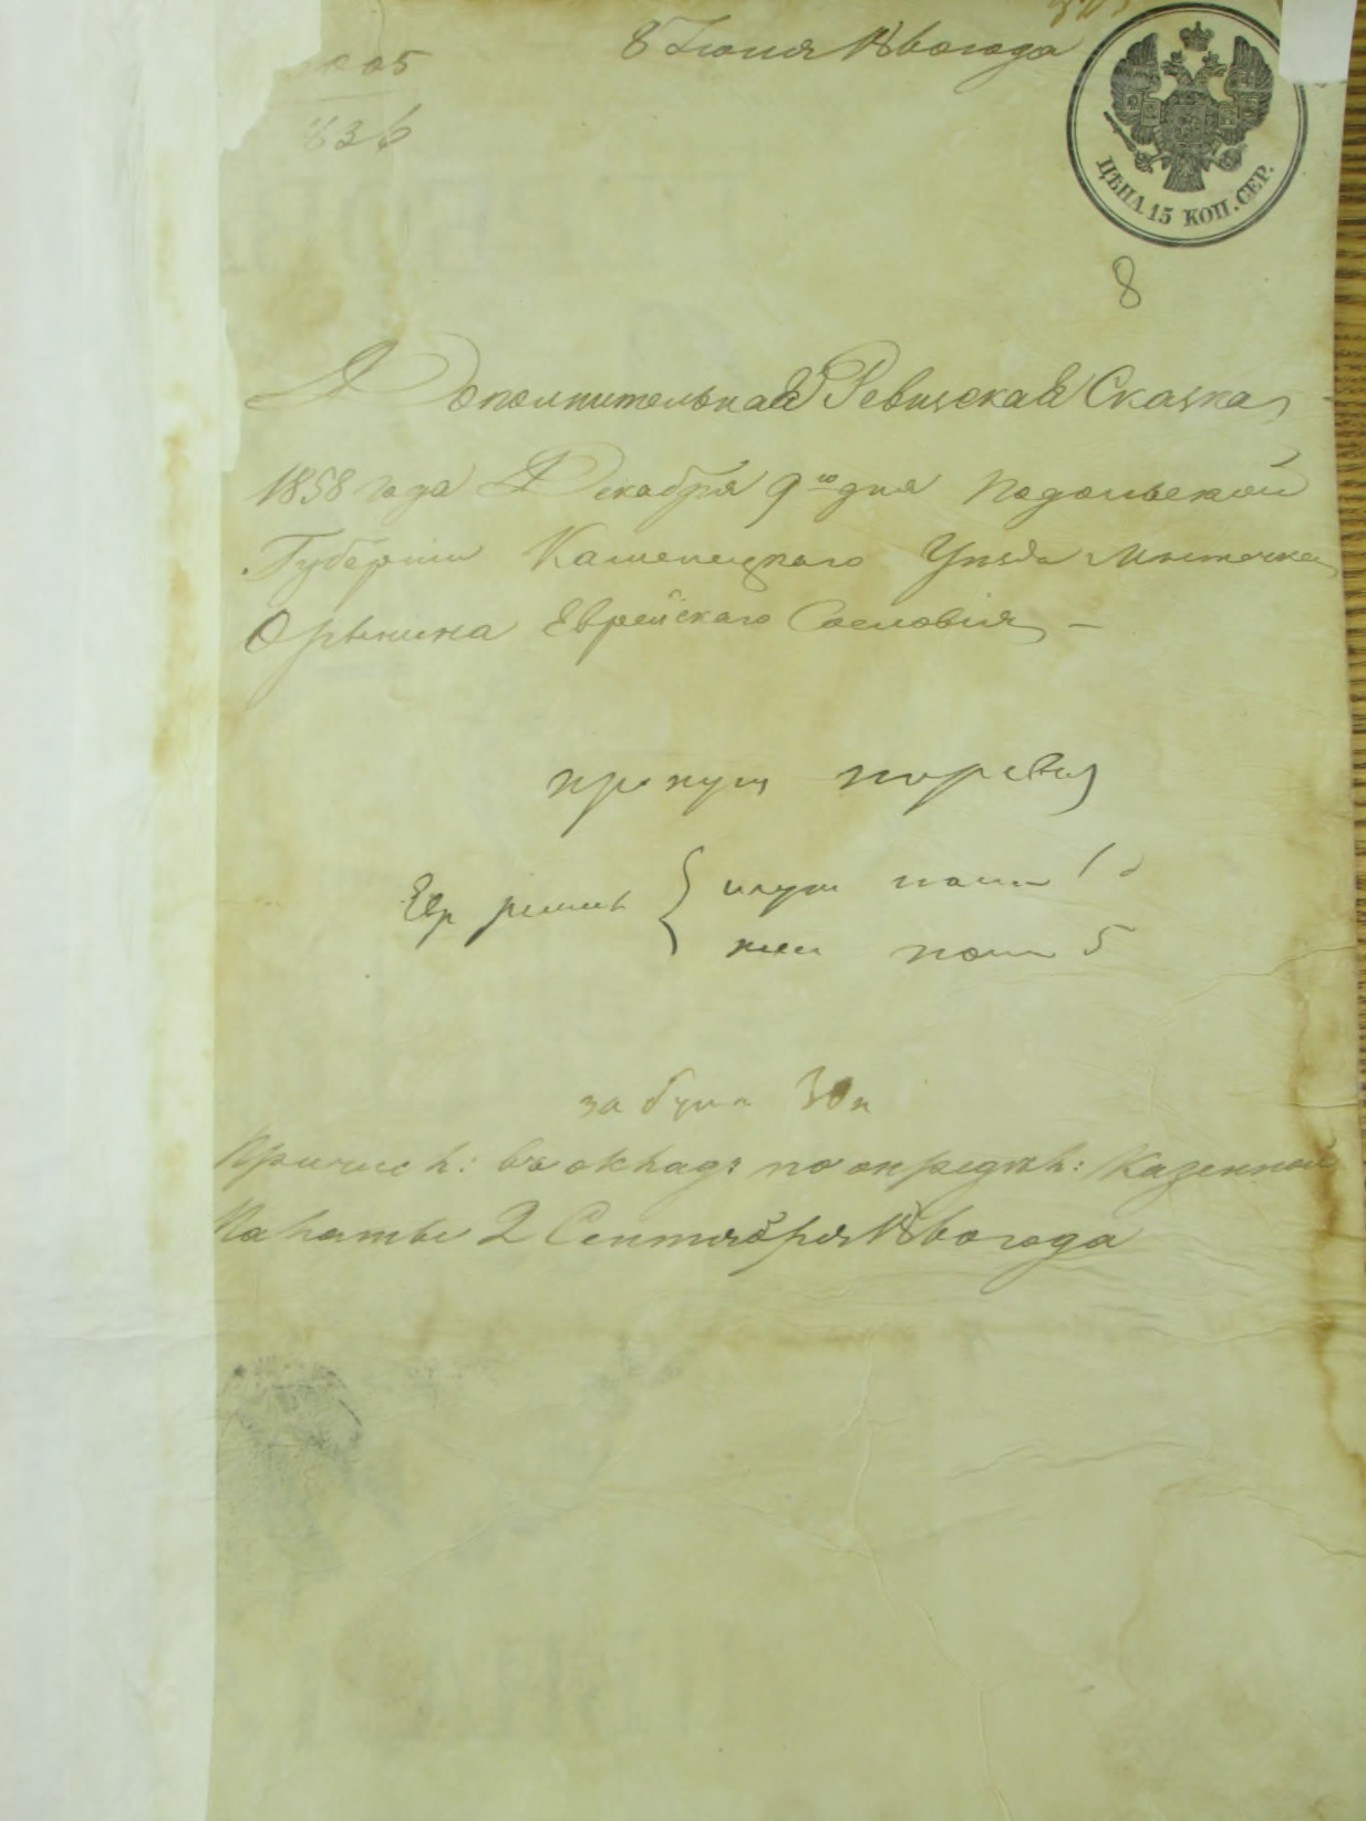 8 Июня 1860 года
005
836
ЦѢНА 15 КОП. СЕР.
8
Дополнительная Ревизская Сказка
1858 года Декабря 9го дня Подольской
Губернiи Каменецкаго Уѣзда Мѣстечка
Орынина Еврейскаго Сословiя —
Евр
5
за бума 30 к
Причисл: въ окладъ по опредѣл: Казенной
Палаты 2 Сентября 1860 года